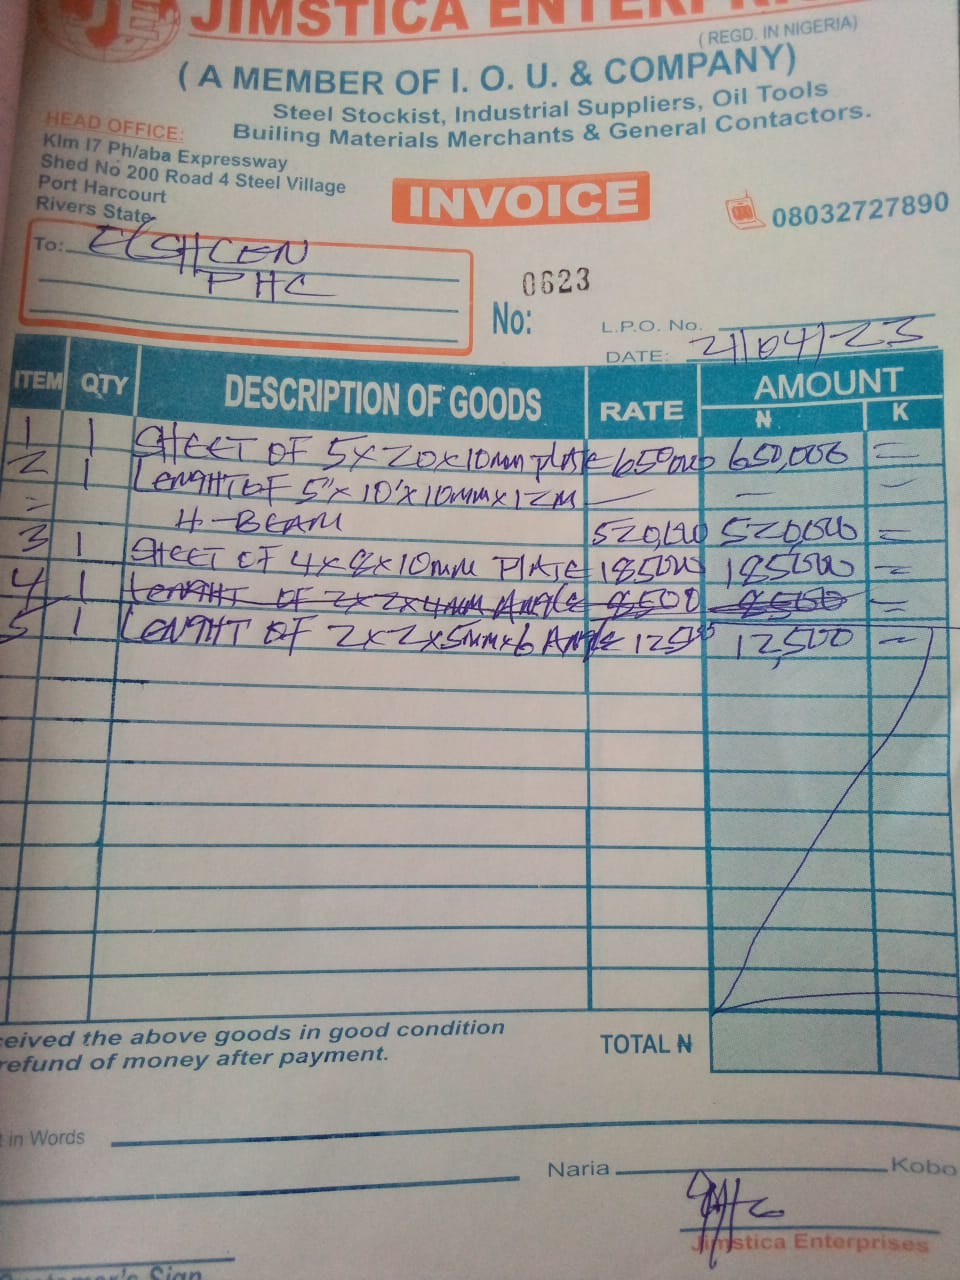 JIMSTICA ENTERPRIS
( REGD. IN NIGERIA)
( A MEMBER OF I. O. U. & COMPANY)
Steel Stockist, Industrial Suppliers, Oil Tools
Builing Materials Merchants & General Contactors.
HEAD OFFICE:
Klm I7 Ph/aba Expressway
Shed No 200 Road 4 Steel Village
Port Harcourt
Rivers State
INVOICE
08032727890
To: ELSHCEN
PHC
No: 0623
L.P.O. No.
DATE: 21/04/23
ITEM QTY DESCRIPTION OF GOODS RATE AMOUNT
₦ K
1 1 SHEET OF 5x20x10mm PLATE 650,000 650,000 =
2 1 LENGHT OF 5"x10'x10mmx12M — — —
= H-BEAM 520,000 520,000 =
3 1 SHEET OF 4x8x10mm PLATE 185000 185000 =
4 1 LENGHT OF 2x2x4mm ANGLE 8500 8500 =
5 1 LENGHT OF 2x2x5mmx6 ANGLE 12500 12,500 —
ceived the above goods in good condition
refund of money after payment.
TOTAL ₦
t in Words
Naria Kobo
Jimstica Enterprises
Customer's Sign